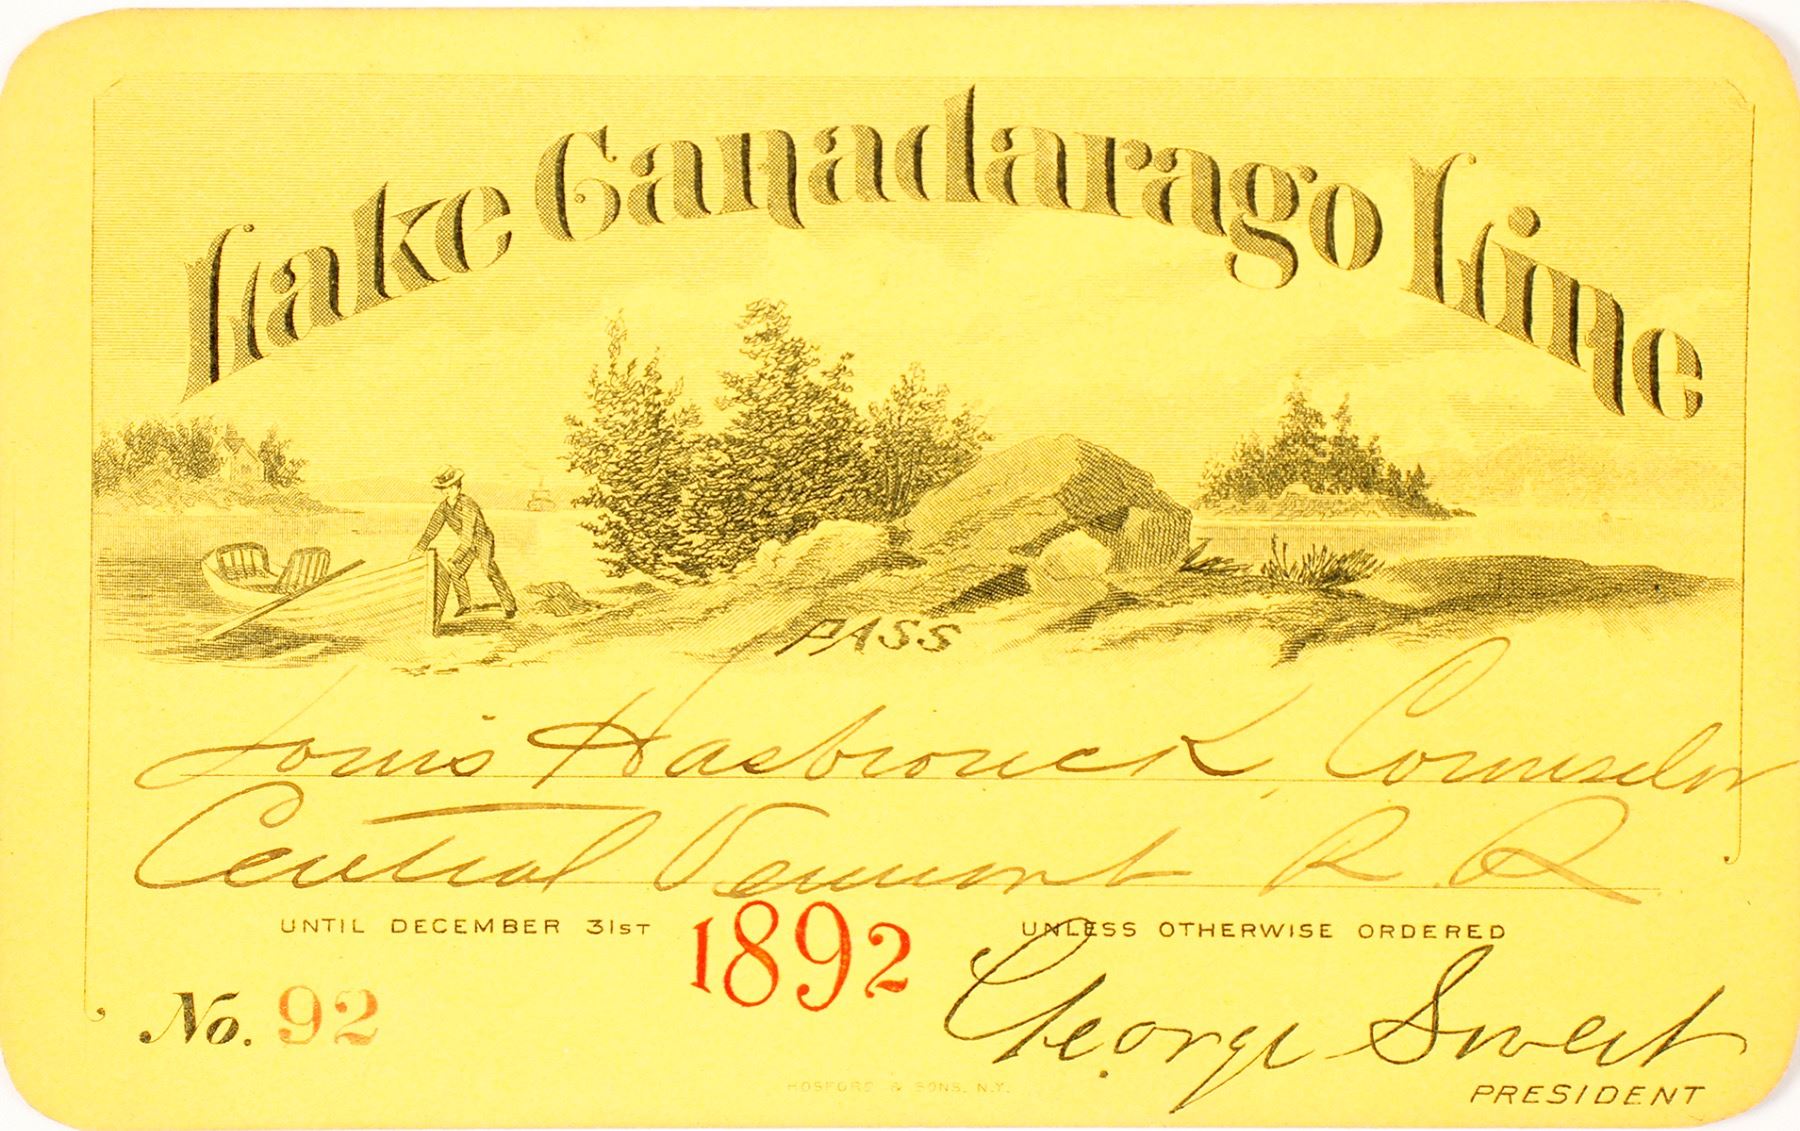 Lake Canadarago Line
PASS
Louis Hasbrouck, Counselor
Central Vermont R.R.
UNTIL DECEMBER 31ST 1892 UNLESS OTHERWISE ORDERED
No. 92
George Sweet
PRESIDENT
HOSFORD & SONS. N.Y.